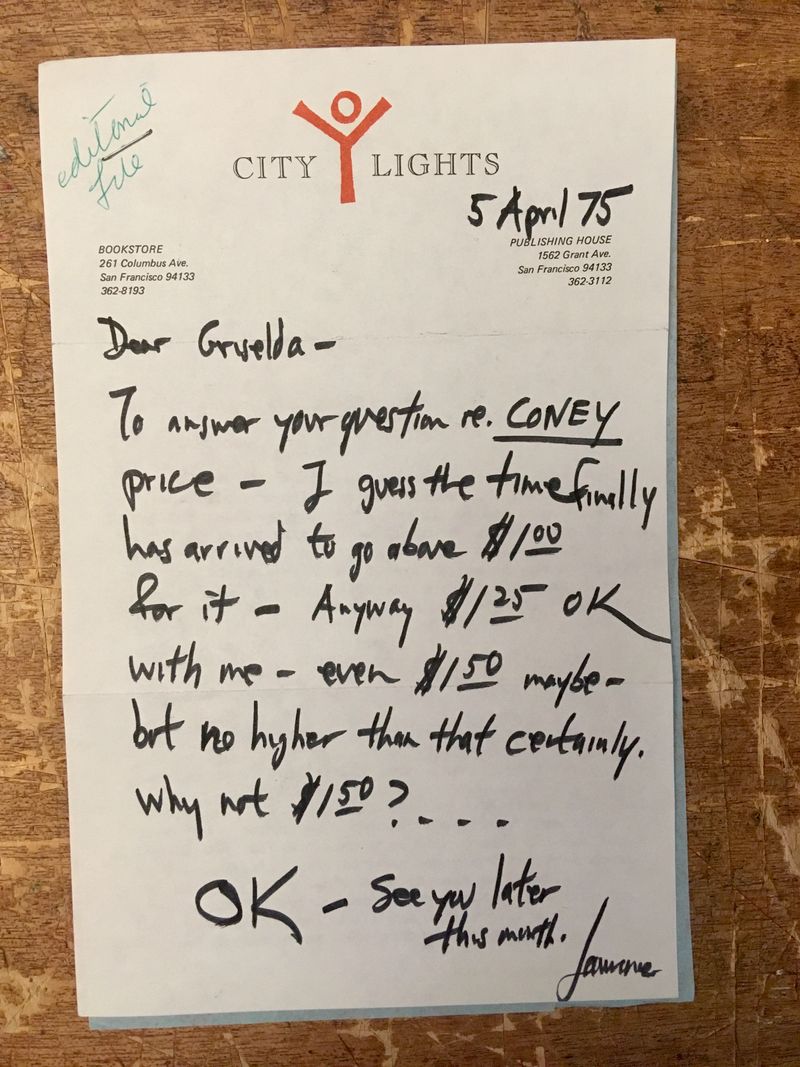 editorial
file
CITY LIGHTS
5 April 75
BOOKSTORE
261 Columbus Ave.
San Francisco 94133
362-8193
PUBLISHING HOUSE
1562 Grant Ave.
San Francisco 94133
362-3112
Dear Griselda –
To answer your question re. CONEY
price – I guess the time finally
has arrived to go above $1.00
for it – Anyway $1.25 OK
with me – even $1.50 maybe –
but no higher than that certainly.
Why not $1.50 ? . . . .
OK – See you later
this month.
Lawrence